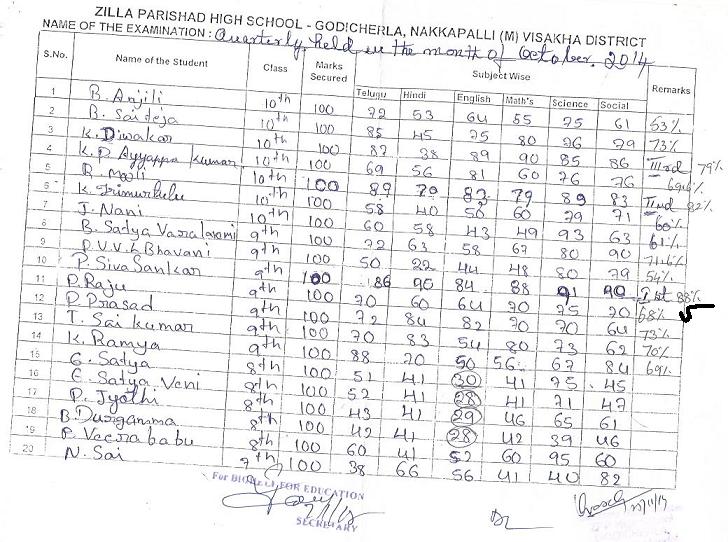 ZILLA PARISHAD HIGH SCHOOL - GODICHERLA, NAKKAPALLI (M) VISAKHA DISTRICT
NAME OF THE EXAMINATION : Quarterly, held in the month of October. 2014
S.No. Name of the Student Class Marks Secured Subject Wise Remarks
Telugu Hindi English Math's Science Social
1 B. Anjili 10th 100 72 53 64 55 75 61 63%
2 B. Saideja 10th 100 85 45 75 80 76 79 73%
3 K. Diwakar 10th 100 87 38 89 90 85 86 IIIrd 79%
4 K. D Ayyappa Kumar 10th 100 69 56 81 60 76 76 69.6%
5 R. Mali 10th 100 89 79 83 79 89 83 IInd 82%
6 K. Trimurhulu 10th 100 58 40 50 60 79 71 60%
7 J. Nani 10th 100 60 58 43 49 93 63 61%
8 B. Satya Varalaxmi 9th 100 72 63 58 67 80 90 71.6%
9 D.V.V.L Bhavani 9th 100 50 22 44 48 80 79 54%
10 P. Siva Sankar 9th 100 86 90 84 88 91 90 Ist 88%
11 P. Raju 9th 100 70 60 64 70 75 70 68%
12 P. Prasad 9th 100 72 84 82 70 70 64 73%
13 T. Sai kumar 9th 100 70 83 54 80 73 62 70%
14 K. Ramya 9th 100 88 70 50 56 67 84 69%
15 G. Satya 8th 100 51 41 30 41 75 45
16 E. Satya Veni 8th 100 52 41 28 41 71 47
17 P. Jyothi 8th 100 43 41 29 46 65 61
18 B. Durgamma 8th 100 42 41 28 42 39 46
19 P. Veera babu 8th 100 60 41 52 60 95 60
20 N. Sai 7th 100 38 66 56 41 40 82
For EDUCATION
SECRETARY